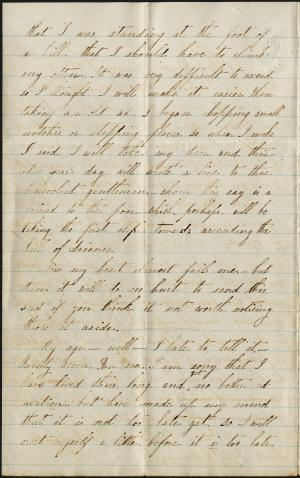 that I was standing at the foot of
a hill that I should have to climb
very often. It was very difficult to ascend
so I thought I will make it easier then
taking an I began chopping small
notches or stepping places so when I woke
I said I will take my pen and this
New years day will write a line to this
benevolent gentleman whom they say is a
friend to the poor which perhaps will be
taking the first step towards ascending the
hill of Science
Now my heart almost fails me but
then it will do no hurt to send this
and if you think it not worth noticing
throw it aside.
My age - well - I hate to tell it
twenty seven I am sorry that I
have lived this long and no better
but have made up my mind
that it is not too late yet so I will
myself a little before it is too late